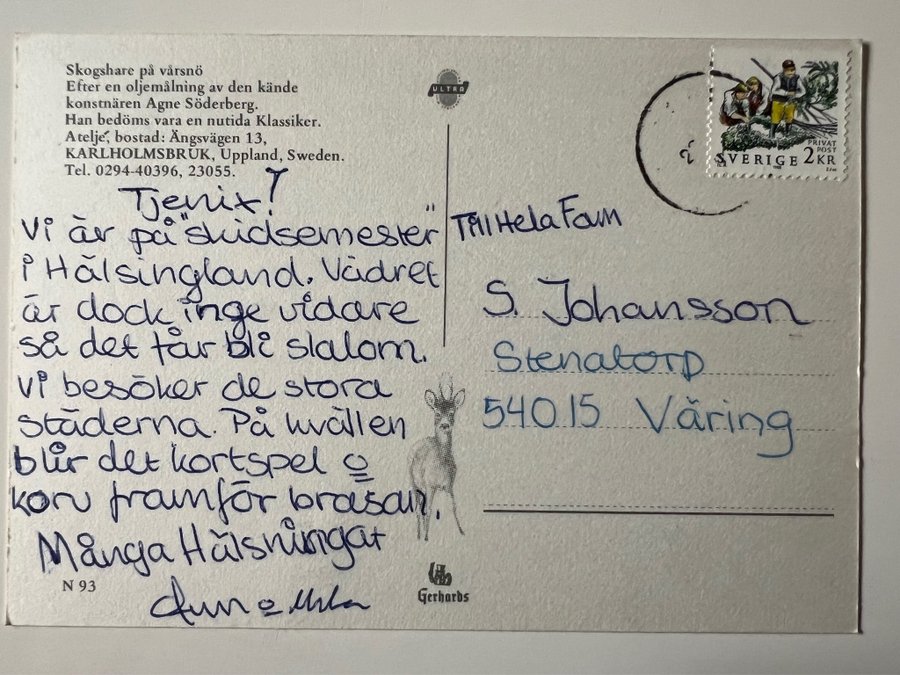 Skogshare på vårsnö
Efter en oljemålning av den kände
konstnären Agne Söderberg.
Han bedöms vara en nutida Klassiker.
Ateljé, bostad: Ängsvägen 13,
KARLHOLMSBRUK, Uppland, Sweden.
Tel. 0294-40396, 23055.
Tjenix!
Vi är på "skidsemester"
i Hälsingland. Vädret
är dock inge vidare
så det får bli slalom.
Vi besöker de stora
städerna. På kvällen
blir det kortspel o
korv framför brasan.
Många Hälsningar
N 93
ULTRA
Gerhards
SVERIGE 2 KR
PRIVAT
POST
Till Hela Fam
S. Johansson
Stenatorp
54015 Väring